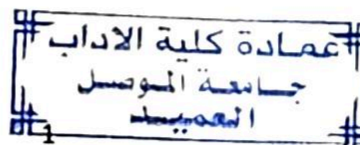 عمادة كلية الاداب
جامعة الموصل
العميد
1